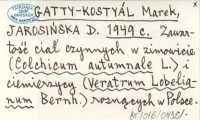 GATTY-KOSTYÁL Marek,
JAROSIŃSKA D. 1949 r. Zawar-
tość ciał czynnych w zimowicie
(Colchicum autumnale L.) i
ciemierzycy (Veratrum Lobelia-
num Bernh.) rosnących w Polsce.